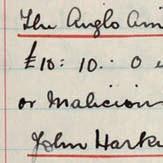 The Anglo Am
£10: 10.. 0
or Malicion
John Hark